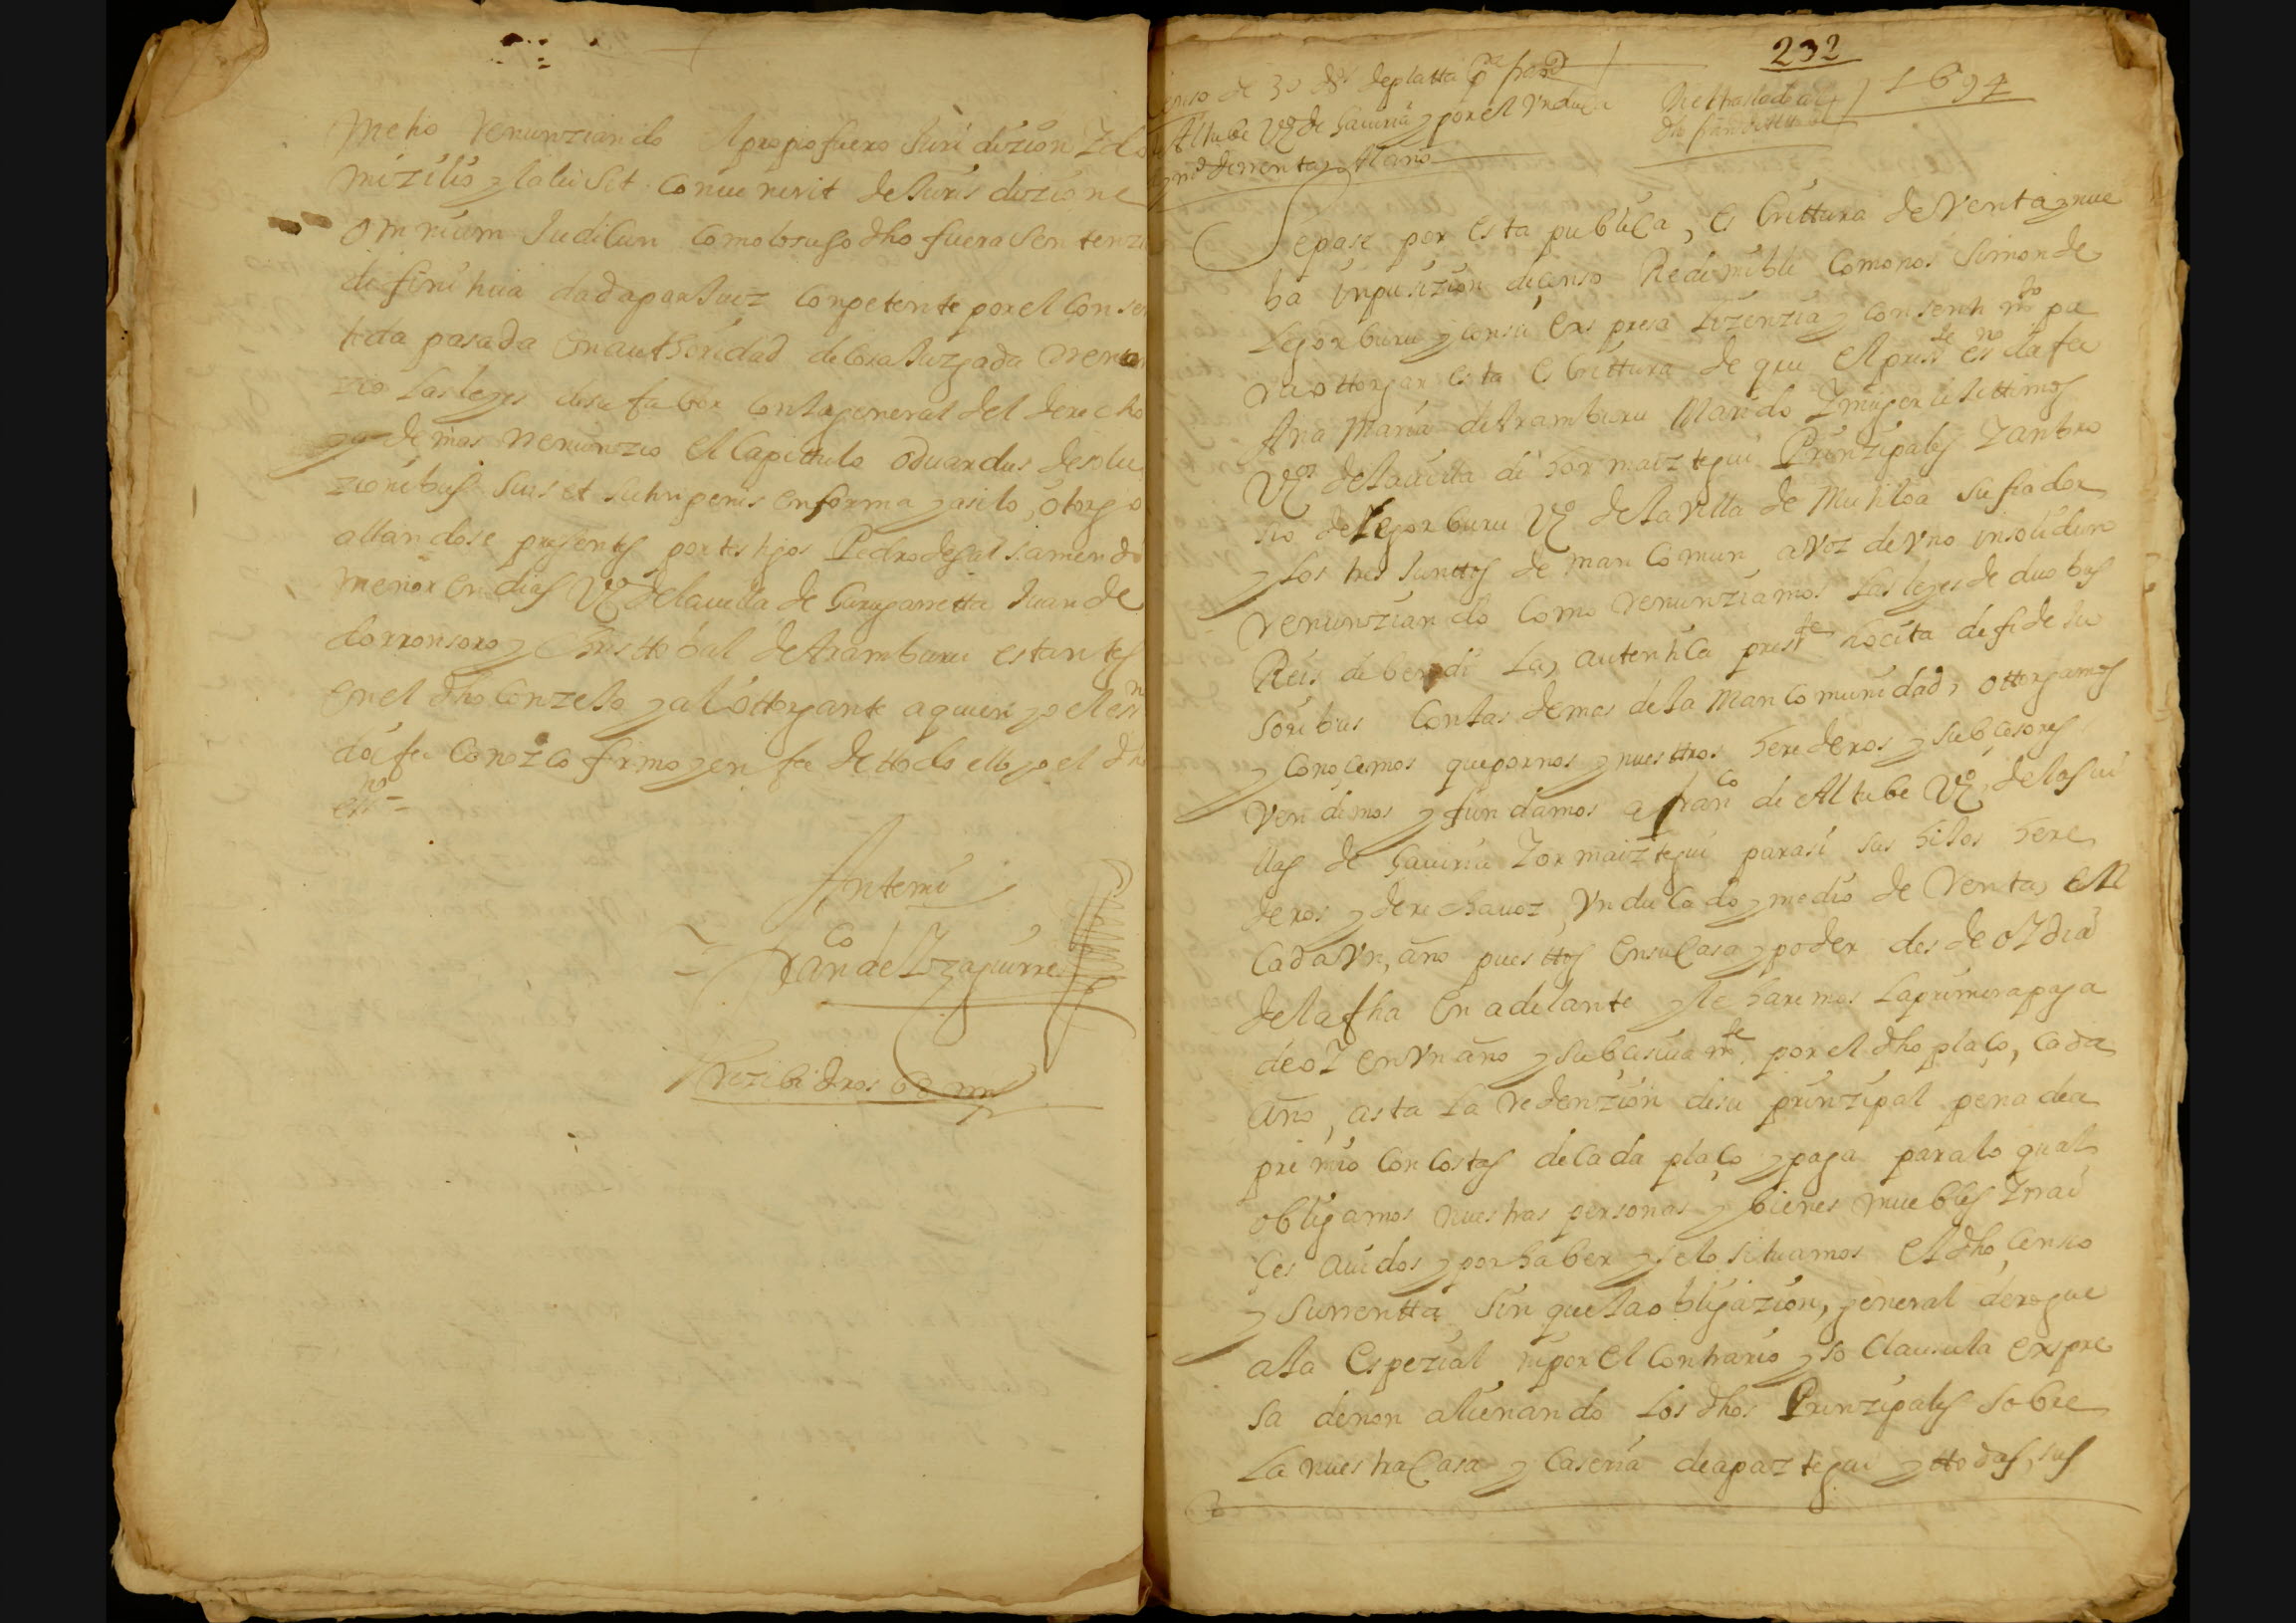 metio renunziando el propio fuero Juridizion Z do
mizilio y la lei Sit conuenerit de Jurisdizione
omnium Judicun como lo suso dho fuera sentenzi
difinitiua dada por Juez conpetente por el consen
tida pasada en authoridad de cosa Juzgada renun
zio las leyes de su fabor con la general del derecho
y ademas renunzio el Capittulo oduardus de solu
zionibus suas et in forma y asi lo otorgo
allandose presentes por testigos Pedro de
menor en dias Vº de la uilla de Gurugarretta Juan de
dorronsoro y Christtobal de Aramburu estantes
en el dho Conzejo y al ottorgante a quien yo el essno
doi fee conozco firmo y en fee de ttodo ello yo el dho
essno =
Antemi
Franco de Yzaguirre
Rezibi dros
232
Censo de 30 ds de platta pa Franco
de Altube Vº de Gauiria y por el Un ducº
y mº de rentta Al año
1694
Sepase por esta publica, escrittura de Venta y nue
ba ynpusizion de censo Redimible como nos Simon de
Legorburu y con su expresa lizenzia y consentimto pa
ra ottorgar esta escrittura de que el presste essno da fee
Ana Maria de Aramburu Marido Z muger lexittimos
Vºs de la uilla de hormaiztegui Prinzipales Z anbro
sio de Legorburu Vº de la Villa de Mutiloa su fiador
y los tres Junttos de mancomun a voz de vno ynsolidun
renunziando como renunziamos las leyes de duobus
Reis debendi la, autentica presste hocita de fide Ju
soribus con las demas de la mancomunidad, ottorgamos
y conocemos que por nos y nuesttros herederos y subcesores
vendimos y fundamos a franco de Altube Vº, de las vi
llas de Gauiria Z ormaiztegui para si sus hijos here
deros y derecha uoz Vn ducado y medio de Renta, en
cada vn, año puesttos en su casa y poder desde oZ dia
de la fha en adelante y le haremos la primera paga
de oZ en vn año y subcesiuamte por el dho plaço, cada
año, asta la redenzion de su prinzipal pena de a
premio con costas de cada plaço y paga para lo qual
obligamos nuestras personas y bienes muebles Z rrai
ces auidos y por haber y se lo situamos el dho, censo
y su rrentta sin que la obligazion, general derogue
a la espezial ni por el contrario y so clausula expre
sa de non alienando los dhos Prinzipales sobre
la nuestra Casa y Caseria de apaztegui y ttodas, sus